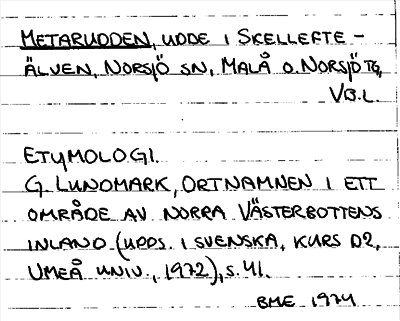 METARUDDEN, UDDE I SKELLEFTE-
ÄLVEN, NORSJÖ SN, MALÅ O. NORSJÖ TG,
VB.L.
ETYMOLOGI.
G. LUNDMARK, ORTNAMNEN I ETT
OMRÅDE AV NORRA VÄSTERBOTTENS
INLAND (UPPS. I SVENSKA, KURS D2,
UMEÅ UNIV., 1972), S. 41.
BME 1974